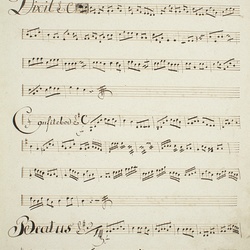 Dixit
Confitebor
Beatus